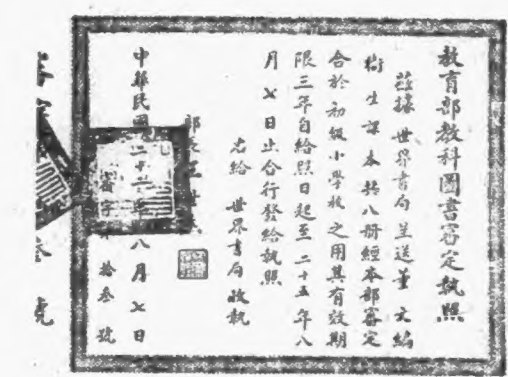 教育部教科圖書審定執照
茲據世界書局呈送董文編
衛生課本共八冊經本部審定
合於初級小學校之用其有效期
限三年自給照日起至二十五年八
月七日止合行發給執照
右給世界書局收執
部長王
中華民國二十年八月七日
審字第拾叁號